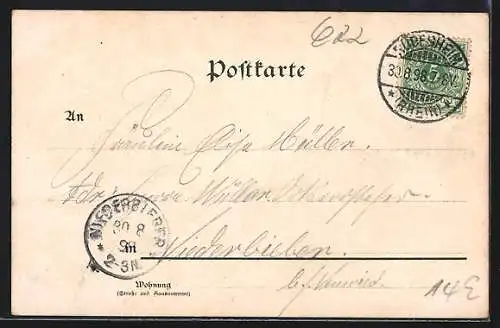 622
RÜDESHEIM
30.8.98.
* (RHEIN) *
Postkarte
An
Fräulein Elise Müller.
Adr. Herrn Müller
NIEDERBIEBER
30 8
98
2-3N.
in Niederbieber.
b/Neuwied.
Wohnung
(Straße und Hausnummer)
A4E